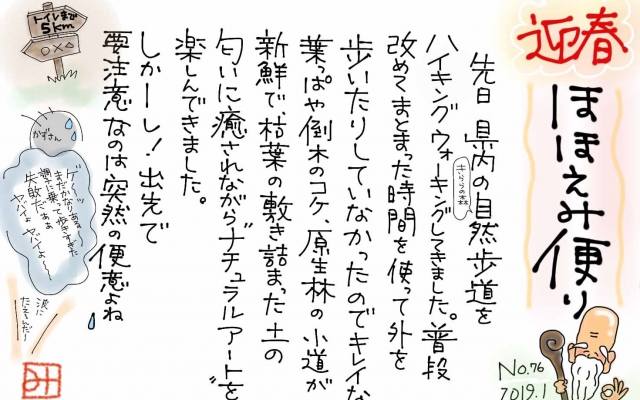 迎春
ほほえみ便り
No.76
2019.1
先日 県内の自然歩道を
きららの森
ハイキング、ウォーキングしてきました。普段
改めてまとまった時間を使って外を
歩いたりしていなかったのでキレイな
葉っぱや倒木のコケ、原生林の小道が
新鮮で、枯葉の敷き詰まった土の
匂いに癒されながらナチュラルアートを
楽しんできました。
しかーし！出先で
要注意なのは突然の便意よね
トイレまで
5km
〇×△
かずさん
ゲ
まだかなりある〜
調子に乗って歩きすぎた
失敗だぁぁ
ヤバイよ ヤバイよ〜
み